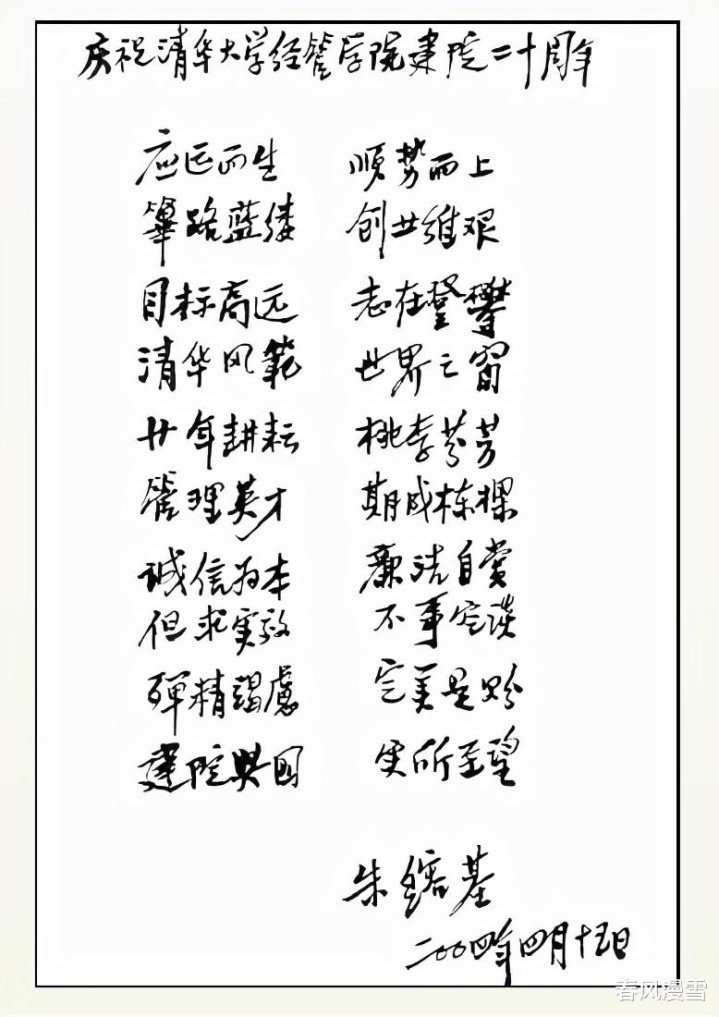 庆祝清华大学经管学院建院二十周年
应运而生 顺势而上
筚路蓝缕 创业维艰
目标高远 志在登攀
清华风范 世界之窗
廿年耕耘 桃李芬芳
管理英才 期成栋樑
诚信为本 廉洁自赏
但求实效 不事空谈
殚精竭虑 完美是盼
建院兴国 实所至望
朱镕基
二〇〇四年四月十五日
春风漫雪